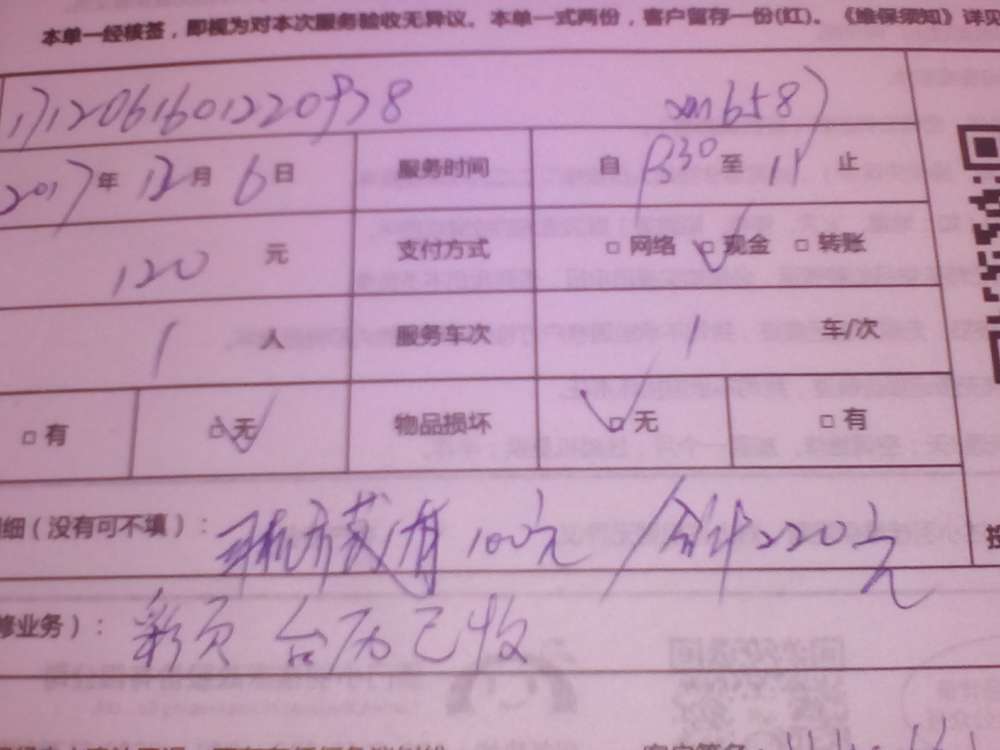 本单一经核签，即视为对本次服务验收无异议。本单一式两份，客户留存一份(红)。《维保须知》详见
1712061601220938 xm6587
2017年12月6日 服务时间 自 830 至 11 止
120 元 支付方式 □ 网络 □ 现金 □ 转账
1 人 服务车次 1 车/次
□ 有 □ 无 物品损坏 □ 无 □ 有
细（没有可不填）： 100元 合计220元
修业务）： 彩页 台历已收
客户签名：